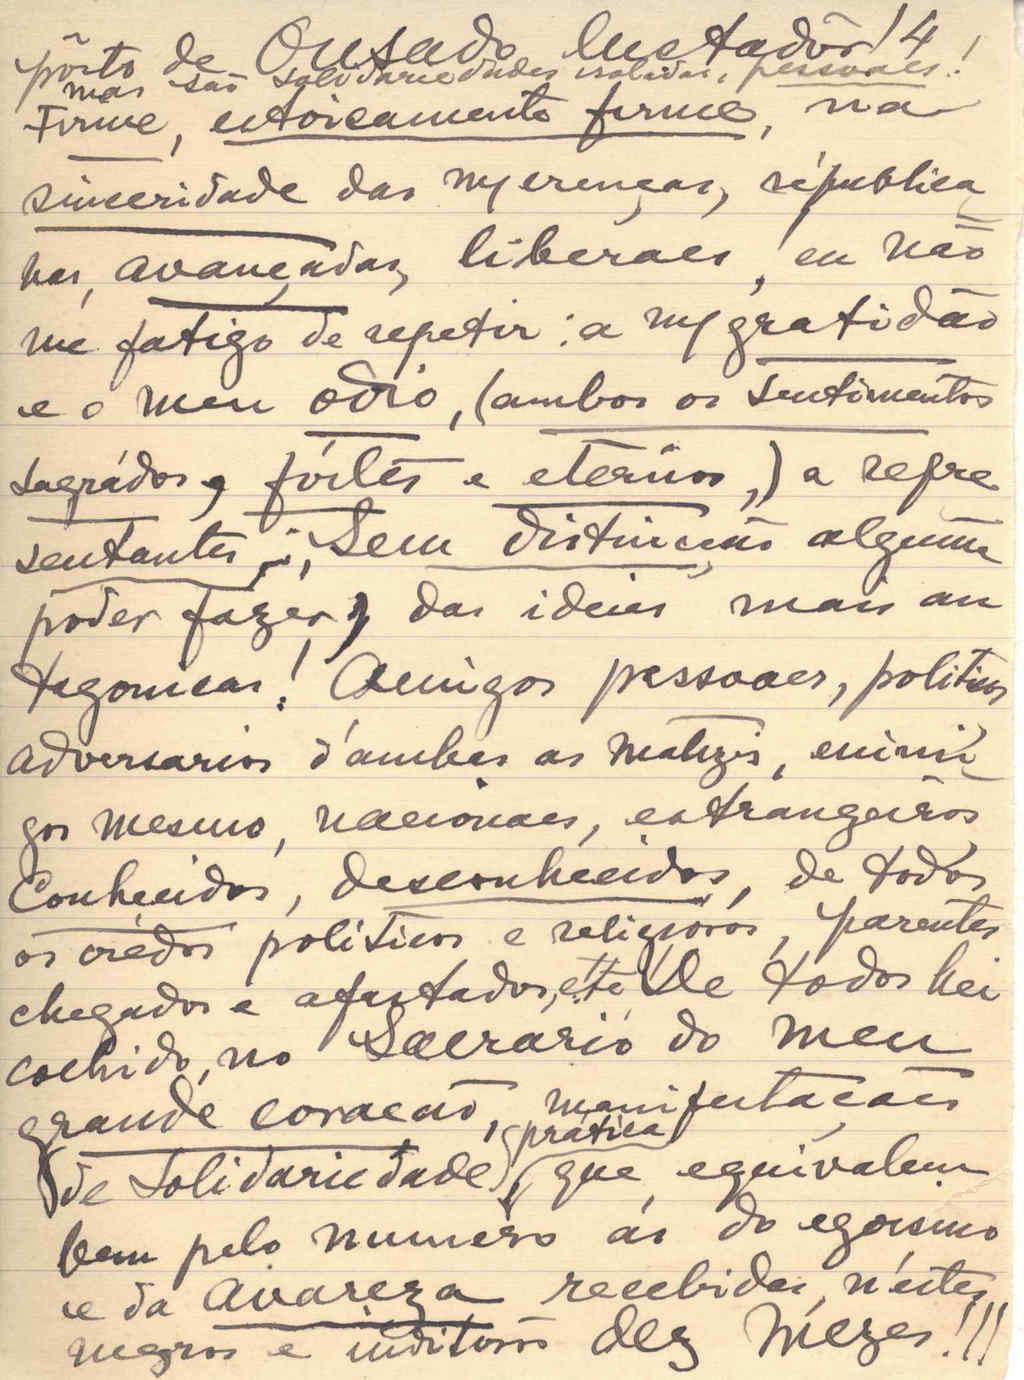 pôrto de Ousado luctadôr! 4
mas são solidariedades isoladas, pessoaes!
Firme, estoicamente firme, na
sinceridade das mas crenças, républica
nas, avançadas, liberaes, eu não
me fatigo de repetir: a mª gratidão
e o meu odio, (ambos os sentimentos
sagrádos, fórtes e eternos,) a repre
sentantes, Sem distincção alguma
poder fazer, das ideias mais an
tagonicas! Amigos pessoaes, politicos
adversarios d'ambas as matizes, inimi
gos mesmo, nacionaes, estrangeiros
Conhecidos, desconhecidos, de todos
os crédos politicos e religiosos, parentes
chegados e afastados, etc De todos hei
colhido, no Sacrario do meu
grande coração, manifestações
(prática)
de Solidariedade, que equivalem
bem pelo numero ás do egoismo
e da avareza recebidas, n'estes
negros e inditosos dez mezes!!!